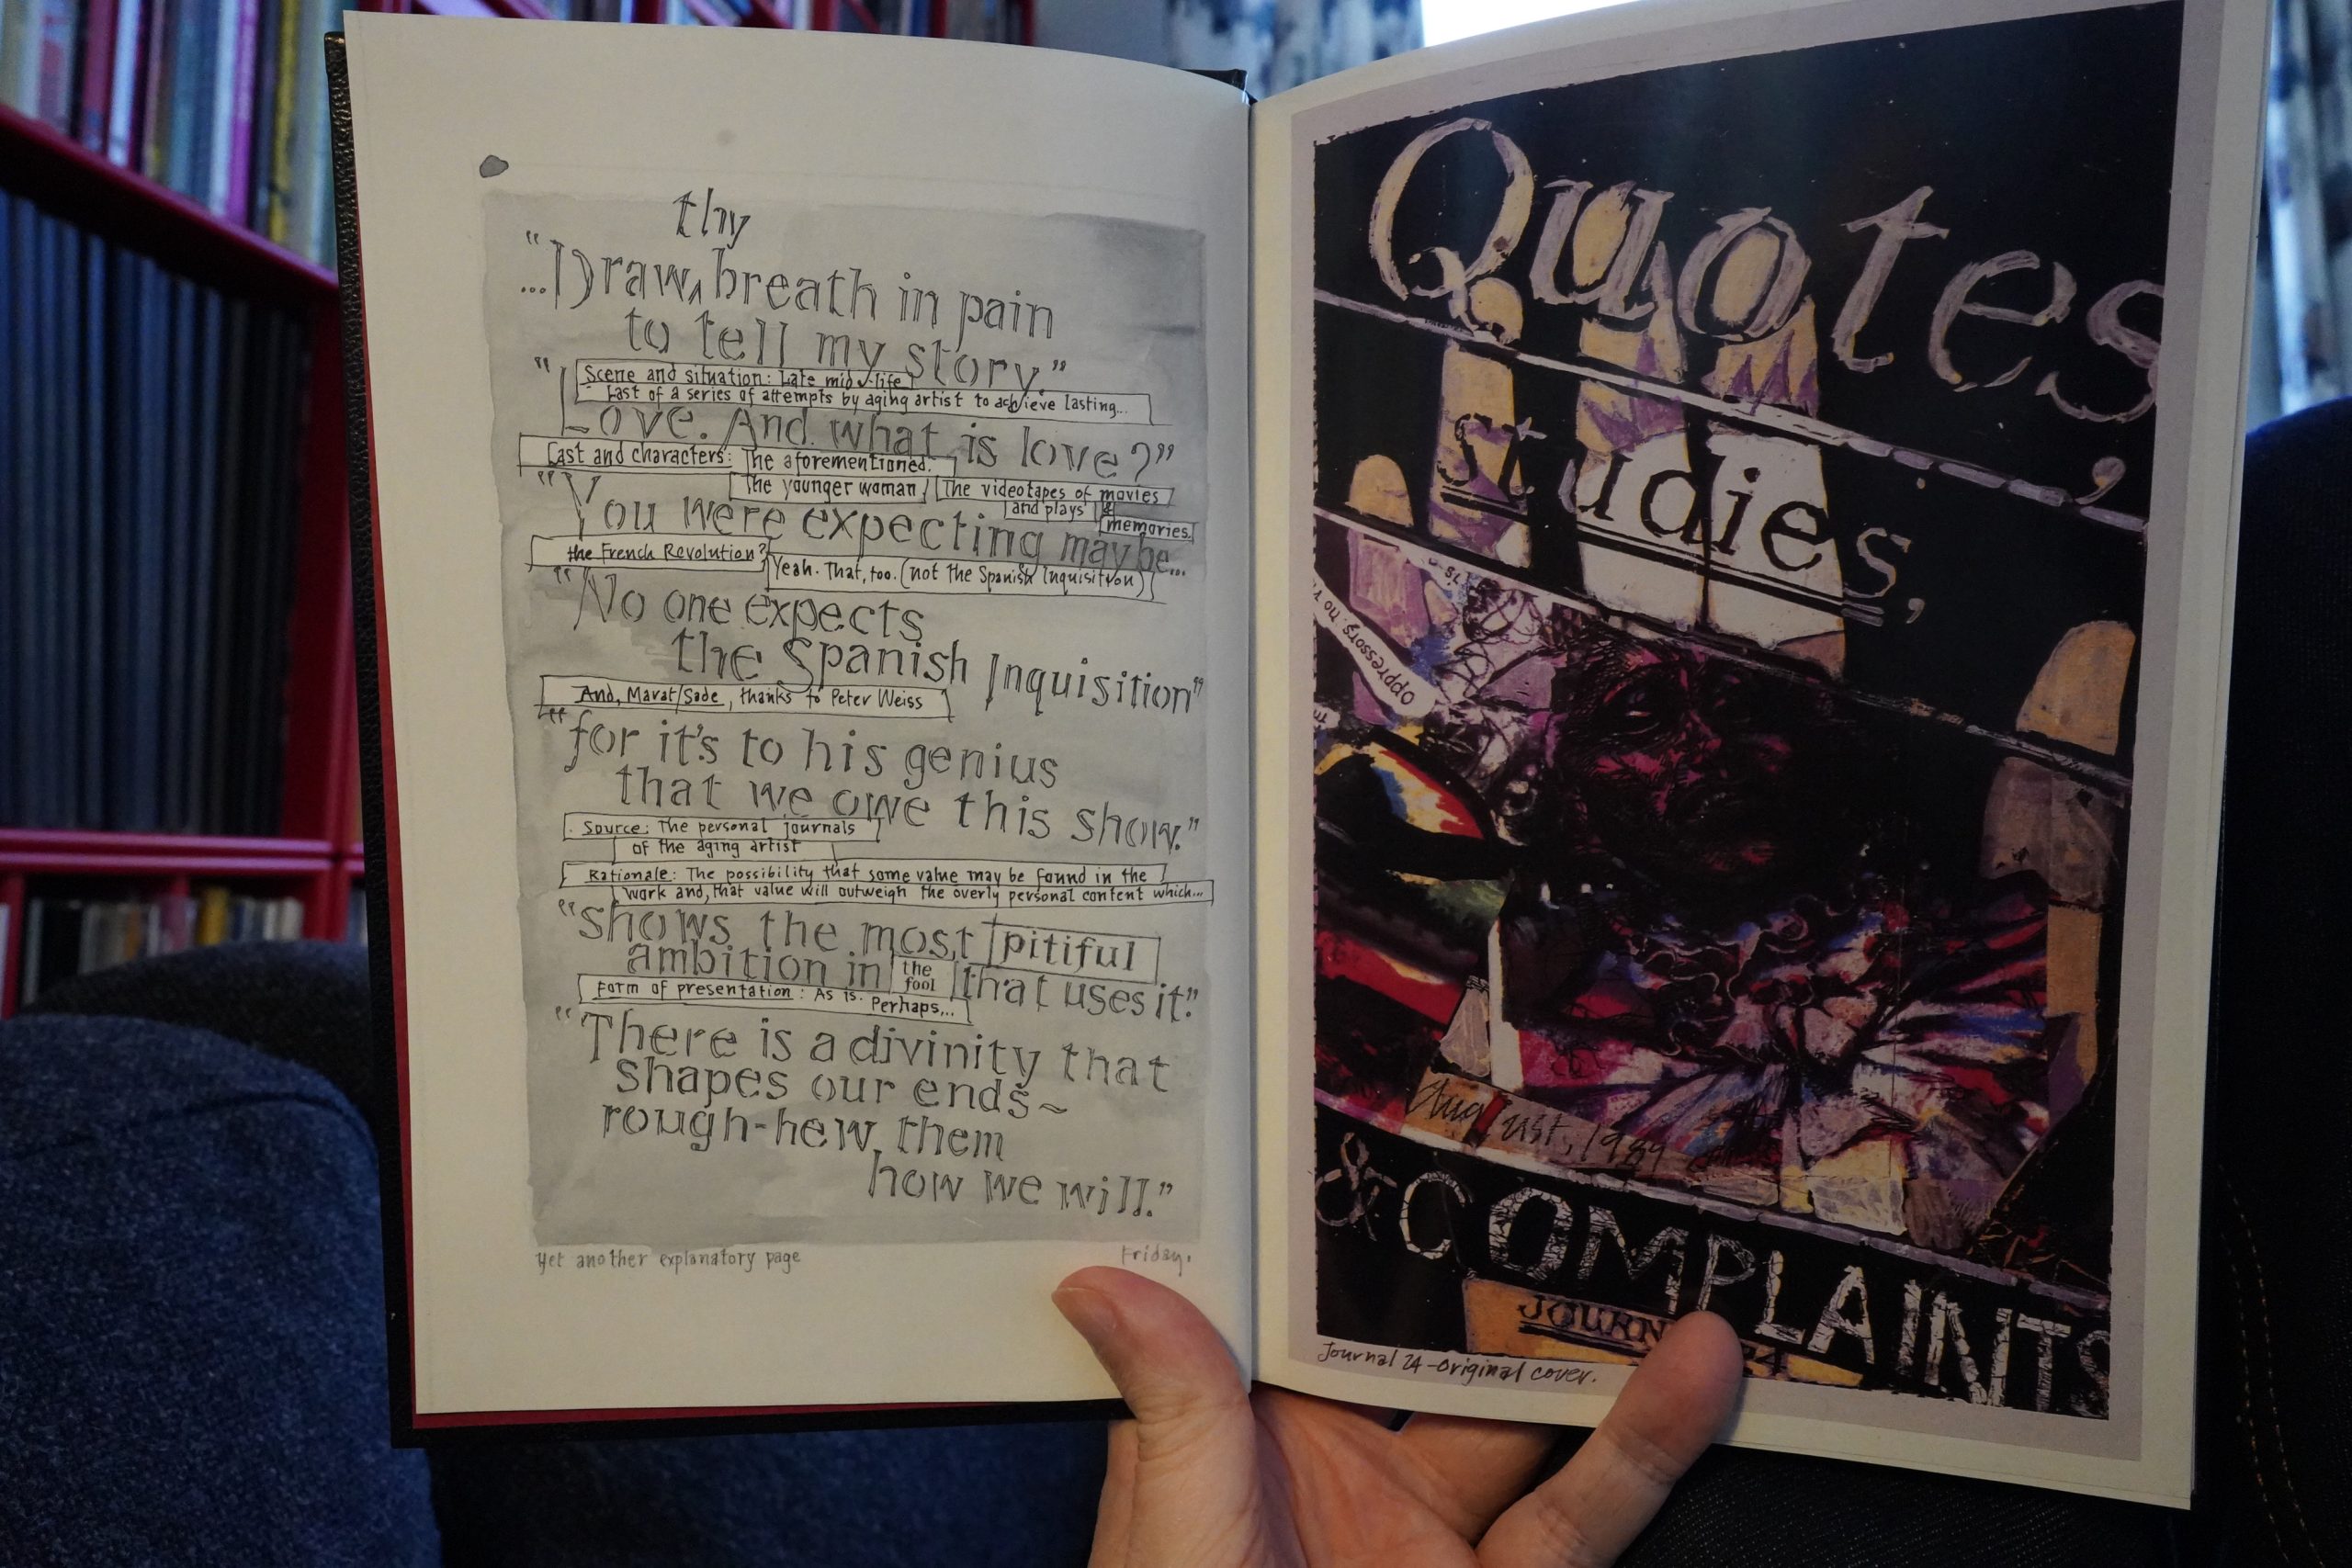 thy
"...Draw ‸ breath in pain
to tell my story."
Scene and situation: Late mid-life
Last of a series of attempts by aging artist to achieve lasting...
"Love. And what is love?"
Cast and characters: The aforementioned.
The younger woman / The videotapes of movies
and plays &
memories.
"You were expecting maybe...
the French Revolution?
Yeah. That, too. (not the Spanish Inquisition)
"No one expects
the Spanish Inquisition"
And, Marat/Sade, thanks to Peter Weiss
"for it's to his genius
that we owe this show."
Source: The personal journals
of the aging artist
Rationale: The possibility that some value may be found in the
work and, that value will outweigh the overly personal content which...
"shows the most pitiful
ambition in the fool that uses it."
Form of presentation: As is. Perhaps...
"There is a divinity that
shapes our ends~
rough-hew them
how we will."
Yet another explanatory page
Friday.
Quotes,
Studies,
oppressors. no
August, 1989
& COMPLAINTS
JOURN
24
Journal 24-Original cover.